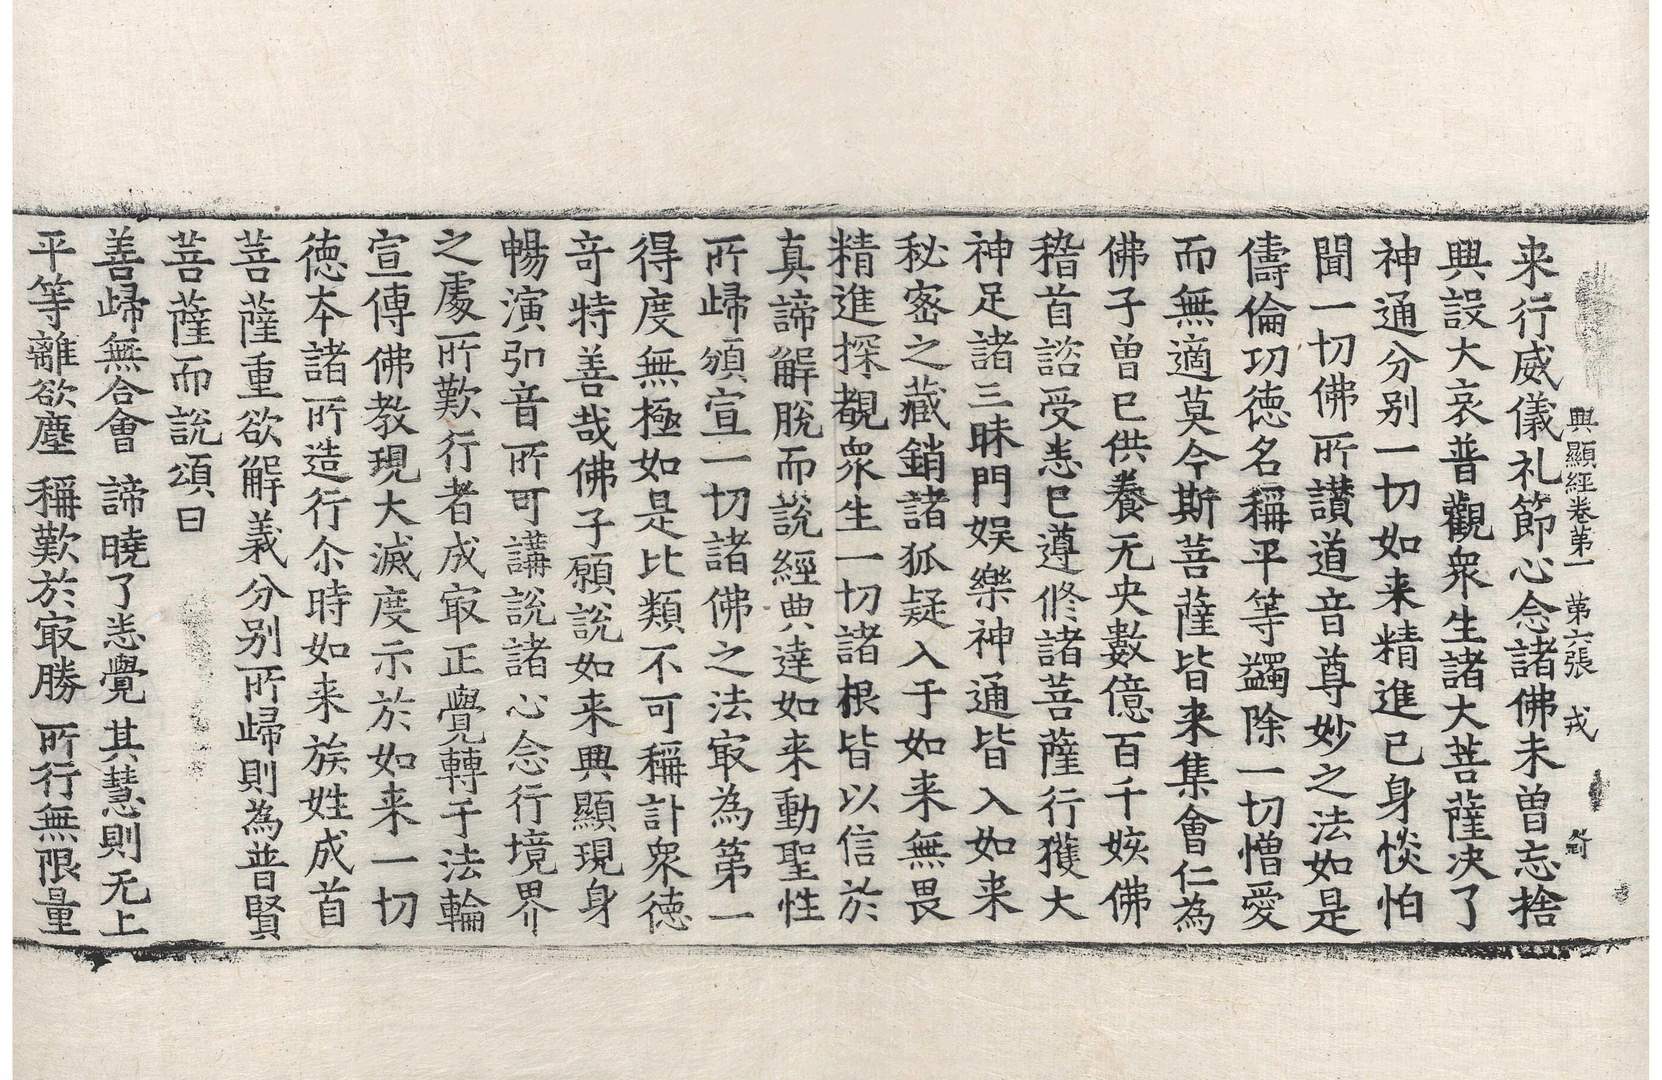 興顯經卷第一 第六張 戎
来行威儀礼節心念諸佛未曽忘捨
興設大哀普觀衆生諸大菩薩决了
神通分别一切如来精進已身惔怕
聞一切佛所讃道音尊妙之法如是
儔倫功徳名稱平等蠲除一切憎愛
而無適莫今斯菩薩皆来集會仁為
佛子曽已供養无央數億百千姟佛
稽首諮受悉已遵修諸菩薩行獲大
神足諸三昧門娯樂神通皆入如来
秘宻之藏銷諸狐疑入于如来無畏
精進探覩衆生一切諸根皆以信於
真諦解脫而説經典達如来動聖性
所歸頒宣一切諸佛之法㝡為第一
得度無極如是比類不可稱計衆徳
竒特善哉佛子願説如来興顯現身
暢演弘音所可講說諸心念行境界
之處所歎行者成㝡正覺轉于法輪
宣傳佛教現大滅度示於如来一切
徳本諸所造行尒時如来族姓成首
菩薩重欲解義分别所歸則為普賢
菩薩而説頌曰
善歸無合會 諦曉了悉覺 其慧則无上
平等離欲塵 稱歎於㝡勝 所行無限量